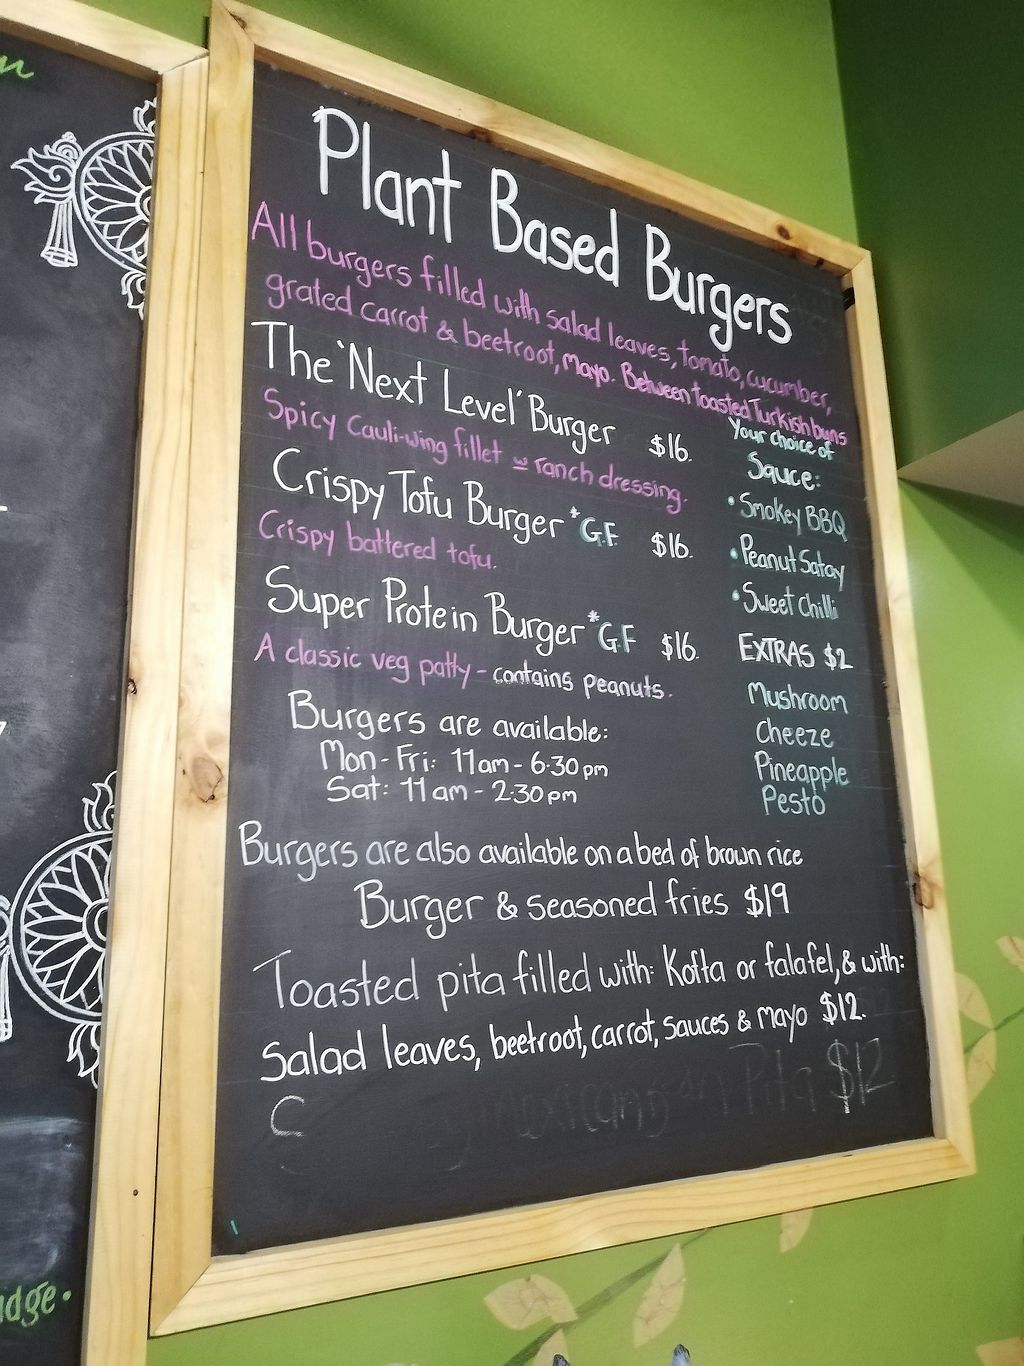 Plant Based Burgers
All burgers filled with salad leaves, tomato, cucumber,
grated carrot & beetroot, mayo. Between toasted Turkish buns
The 'Next Level' Burger $16.
Spicy Cauli-wing fillet w ranch dressing.
Crispy Tofu Burger *G.F $16.
Crispy battered tofu.
Super Protein Burger *G.F $16.
A classic veg patty - contains peanuts.
Your choice of
Sauce:
• Smokey BBQ
• Peanut Satay
• Sweet Chilli
EXTRAS $2
Mushroom
Cheeze
Pineapple
Pesto
Burgers are available:
Mon - Fri: 11am - 6·30pm
Sat: 11am - 2·30pm
Burgers are also available on a bed of brown rice
Burger & seasoned fries $19
Toasted pita filled with: Kofta or falafel, & with:
Salad leaves, beetroot, carrot, sauces & mayo $12.
C Mexican Pita $12